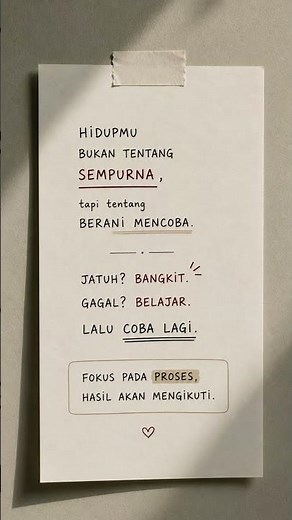 HiDUPMU
BUKAN TENTANG
SEMPURNA,
tapi tentang
BERANi MENCOBA.
JATUH? BANGKiT.
GAGAL? BELAJAR.
LALU COBA LAGi.
FOKUS PADA PROSES,
HASiL AKAN MENGiKUTi.